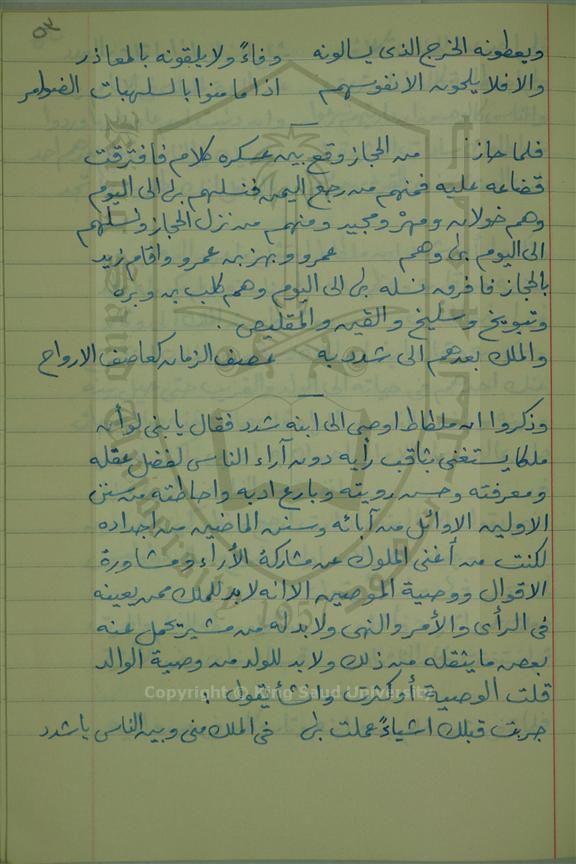 ٥٣
ويعطونه الخرج الذي يسألونه وفاءً ولا يلقونه بالمعاذر
والا فلا يلحون الا نفوسهم اذا ما منوا بالسلهبات الضوامر
فلما جاز من الحجاز وقع بين عسكره كلام فافترقت
قضاعه عليه فمنهم من رجع اليمن فنسلهم بها الى اليوم
وهم خولان ومهرة ومجيد ومنهم من نزل الحجاز ونسلهم
الى اليوم بها وهم عمرو وبهز بن عمرو واقام زيد
بالحجاز فافرق نسله بها الى اليوم وهم كلب بن وبره
وتنويخ وسليخ والقين والمقليص .
والملك بعدهم الى شدد به عصف الزمان كعاصف الارواح
وذكروا ان ملطاط اوصى الى ابنه شدد فقال يا بني لو أن
ملكا يستغنى بثاقب رأيه دون آراء الناس لفضل عقله
ومعرفته وحسن رويته وبارع ادبه واحاطته من سنن
الاولين الاوائل من آبائه وسنن الماضين من اجداده
لكنت من أغنى الملوك عن مشاركة الأراء ومشاورة
الاقوال ووصية الموصين الا انه لا بد للملك ممن يعينه
في الرأى والأمر والنهى ولا بد له من مشير تحمل عنه
بعض ما يثقله من ذلك ولا بد للولد من وصية الوالد
قلت الوصية أو كثرت وانشأ يقول :
جربت قبلك اشياءً عملت بها في الملك منى وبين الناس يا شدد
Copyright © King Saud University
1957